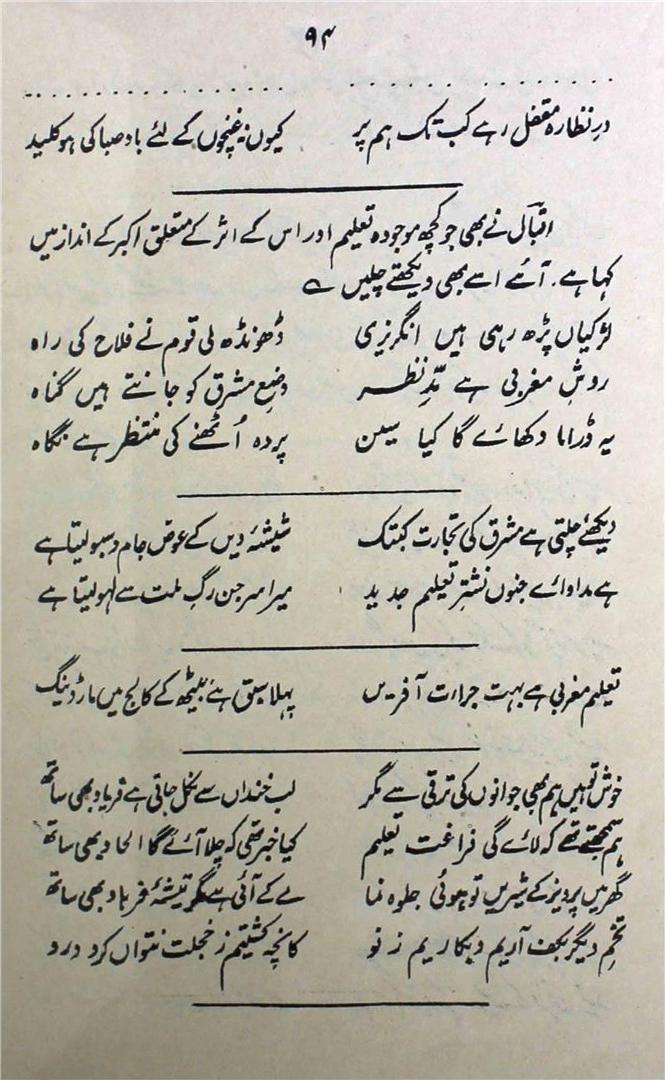 ۹۴
درِ نظارہ مقفل رہے کب تک ہم پر کیوں نہ غنچوں کے لئے بادِ صبا کی ہو کلید
اقبالؔ نے بھی جو کچھ موجودہ تعلیم اور اس کے اثر کے متعلق اکبر کے انداز میں
کہا ہے. آئے اسے بھی دیکھتے چلیں ؎
لڑکیاں پڑھ رہی ہیں انگریزی ڈھونڈھ لی قوم نے فلاح کی راہ
روشِ مغربی ہے مدِّ نظر وضعِ مشرق کو جانتے ہیں گناہ
یہ ڈراما دکھائے گا کیا سین پردہ اُٹھنے کی منتظر ہے نگاہ
دیکھئے چلتی ہے مشرق کی تجارت کبتک شیشۂ دیں کے عوض جام و سبو لیتا ہے
ہے مداوائے جنوں نشترِ تعلیم جدید میرا سرجن رگِ ملت سے لہو لیتا ہے
تعلیم مغربی ہے بہت جراءت آفریں پہلا سبق ہے بیٹھ کے کالج میں مار ڈینگ
خوش تو ہیں ہم بھی جوانوں کی ترقی سے مگر لب خنداں سے نکل جاتی ہے فریاد بھی ساتھ
ہم سمجھتے تھے کہ لائے گی فراغت تعلیم کیا خبر تھی کہ چلا آئے گا الحاد بھی ساتھ
گھر میں پرویز کے شیریں تو ہوئی جلوہ نما لے کے آئی ہے مگر تیشۂ فرہاد بھی ساتھ
تخمِ دیگر بکف آریم و بکاریم ز نو کانچہ کشتیم ز خجلت نتواں کرد درو